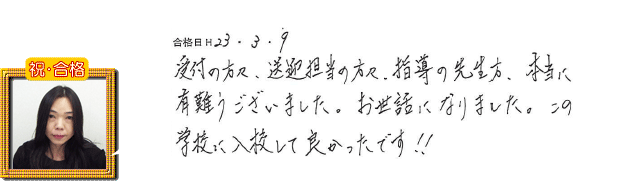 合格日 H23.3.9
祝・合格
受付の方々、送迎担当の方々、指導の先生方、本当に
有難うございました。お世話になりました。この
学校に入校して良かったです!!